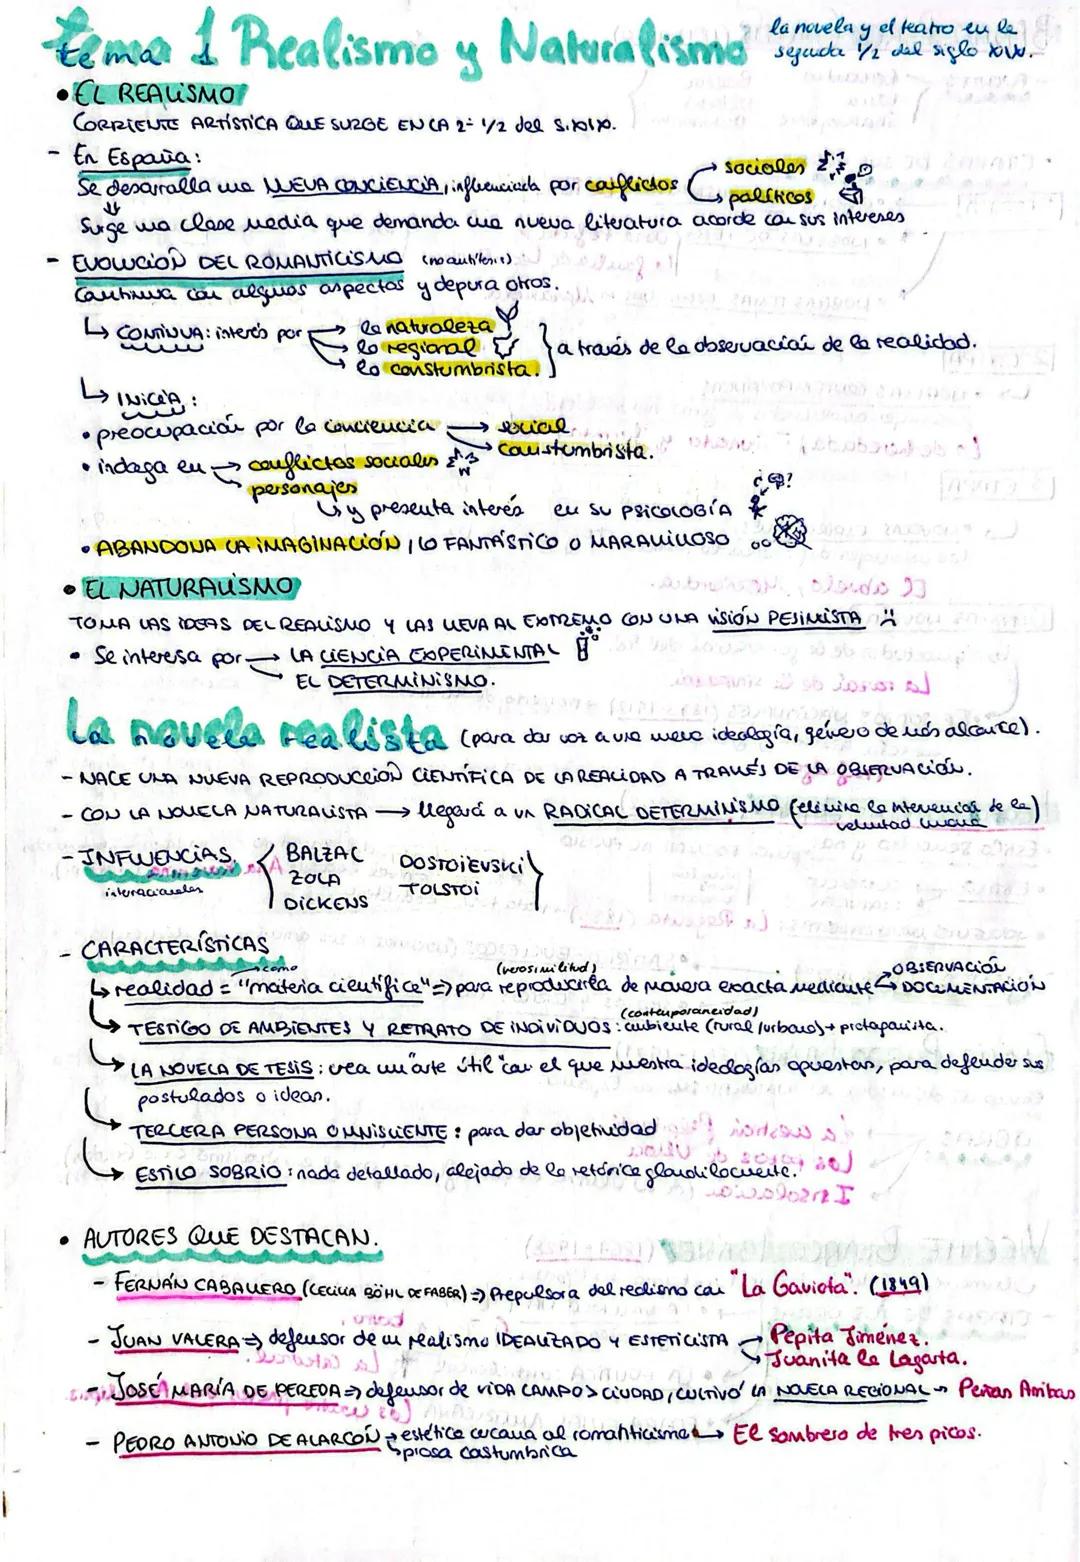 tema 1 Realismo y Naturalismo
la novela y el teatro en la
segunda 1/2 del siglo XIX.
• EL REALISMO
CORRIENTE ARTÍSTICA QUE SURGE EN LA 2ª 1/2 del S.XIX.
- En España:
Se desarrolla una NUEVA CONCIENCIA, influenciada por conflictos → sociales
→ políticos
⇓
Surge una clase media que demanda una nueva literatura acorde con sus intereses
- EVOLUCIÓN DEL ROMANTICISMO (no antítesis)
Continua con algunos aspectos y depura otros.
↳ CONTINUA: interés por → la naturaleza
→ lo regional } a través de la observación de la realidad.
→ lo constumbrista.
↳ INICIA:
• preocupación por la conciencia → social
→ constumbrista.
• indaga en → conflictos sociales
personajes
↳ y presenta interés en su PSICOLOGÍA
• ABANDONA LA IMAGINACIÓN, LO FANTÁSTICO O MARAVILLOSO
• EL NATURALISMO
TOMA LAS IDEAS DEL REALISMO Y LAS LLEVA AL EXTREMO CON UNA VISIÓN PESIMISTA
• Se interesa por → LA CIENCIA EXPERIMENTAL
→ EL DETERMINISMO.
La novela realista (para dar voz a una nueva ideología, género de más alcance).
- NACE UNA NUEVA REPRODUCCIÓN CIENTÍFICA DE LA REALIDAD A TRAVÉS DE LA OBSERVACIÓN.
- CON LA NOVELA NATURALISTA → llegará a un RADICAL DETERMINISMO (elimina la intervención de la)
voluntad humana
- INFLUENCIAS
internacionales
BALZAC
ZOLA
DICKENS
DOSTOIEVSKI
TOLSTOI
- CARACTERÍSTICAS
como (verosimilitud) OBSERVACIÓN
↳ realidad = "materia científica" ⇒ para reproducirla de manera exacta mediante → DOCUMENTACIÓN
(contemporaneidad)
↳ TESTIGO DE AMBIENTES Y RETRATO DE INDIVIDUOS: ambiente (rural/urbano) + protagonista.
↳ LA NOVELA DE TESIS: crea un "arte útil" con el que muestra ideologías opuestas, para defender sus
postulados o ideas.
↳ TERCERA PERSONA OMNISCIENTE: para dar objetividad
↳ ESTILO SOBRIO: nada detallado, alejado de la retórica glandilocuente.
• AUTORES QUE DESTACAN.
- FERNÁN CABALLERO (CECILIA BÖHL DE FABER) ⇒ Prepulsora del realismo con "La Gaviota". (1849)
- JUAN VALERA ⇒ defensor de un realismo IDEALIZADO Y ESTETICISTA → Pepita Jiménez.
→ Juanita la Lagarta.
- JOSÉ MARÍA DE PEREDA ⇒ defensor de VIDA CAMPO > CIUDAD, CULTIVÓ LA NOVELA REGIONAL → Peñas Arribas
- PEDRO ANTONIO DE ALARCÓN → estética cercana al romanticismo → El sombrero de tres picos.
↳ prosa costumbrica